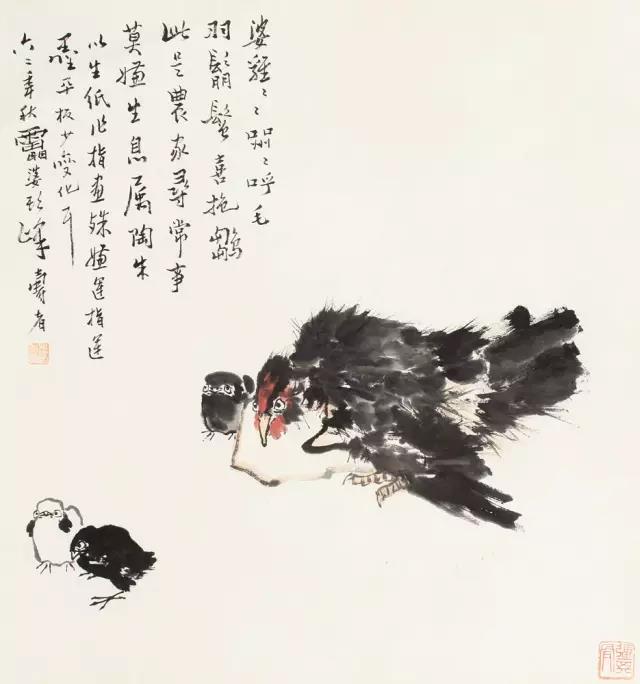 婆雞〻〻〻呼毛
羽鬅鬙喜抱鶵
此是農家尋常事
莫嫌生息陶朱
以生紙作指畫殊嫌運指運
墨平板少變化耳
六二年秋靁婆頭峰壽者